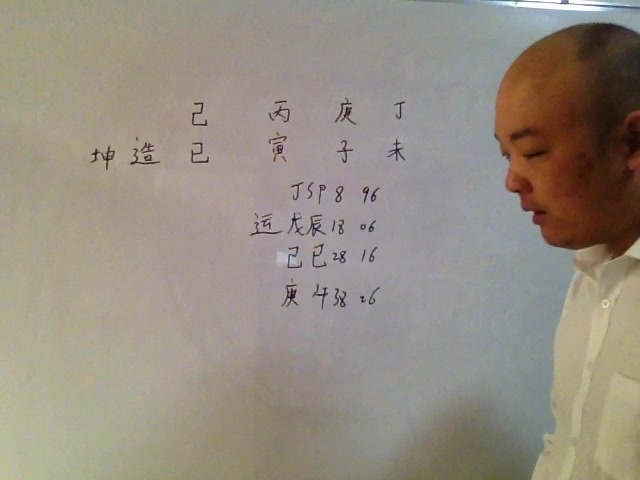 己 丙 庚 丁
坤 造 巳 寅 子 未
丁卯 8 96
运 戊辰 18 06
己巳 28 16
庚午 38 26